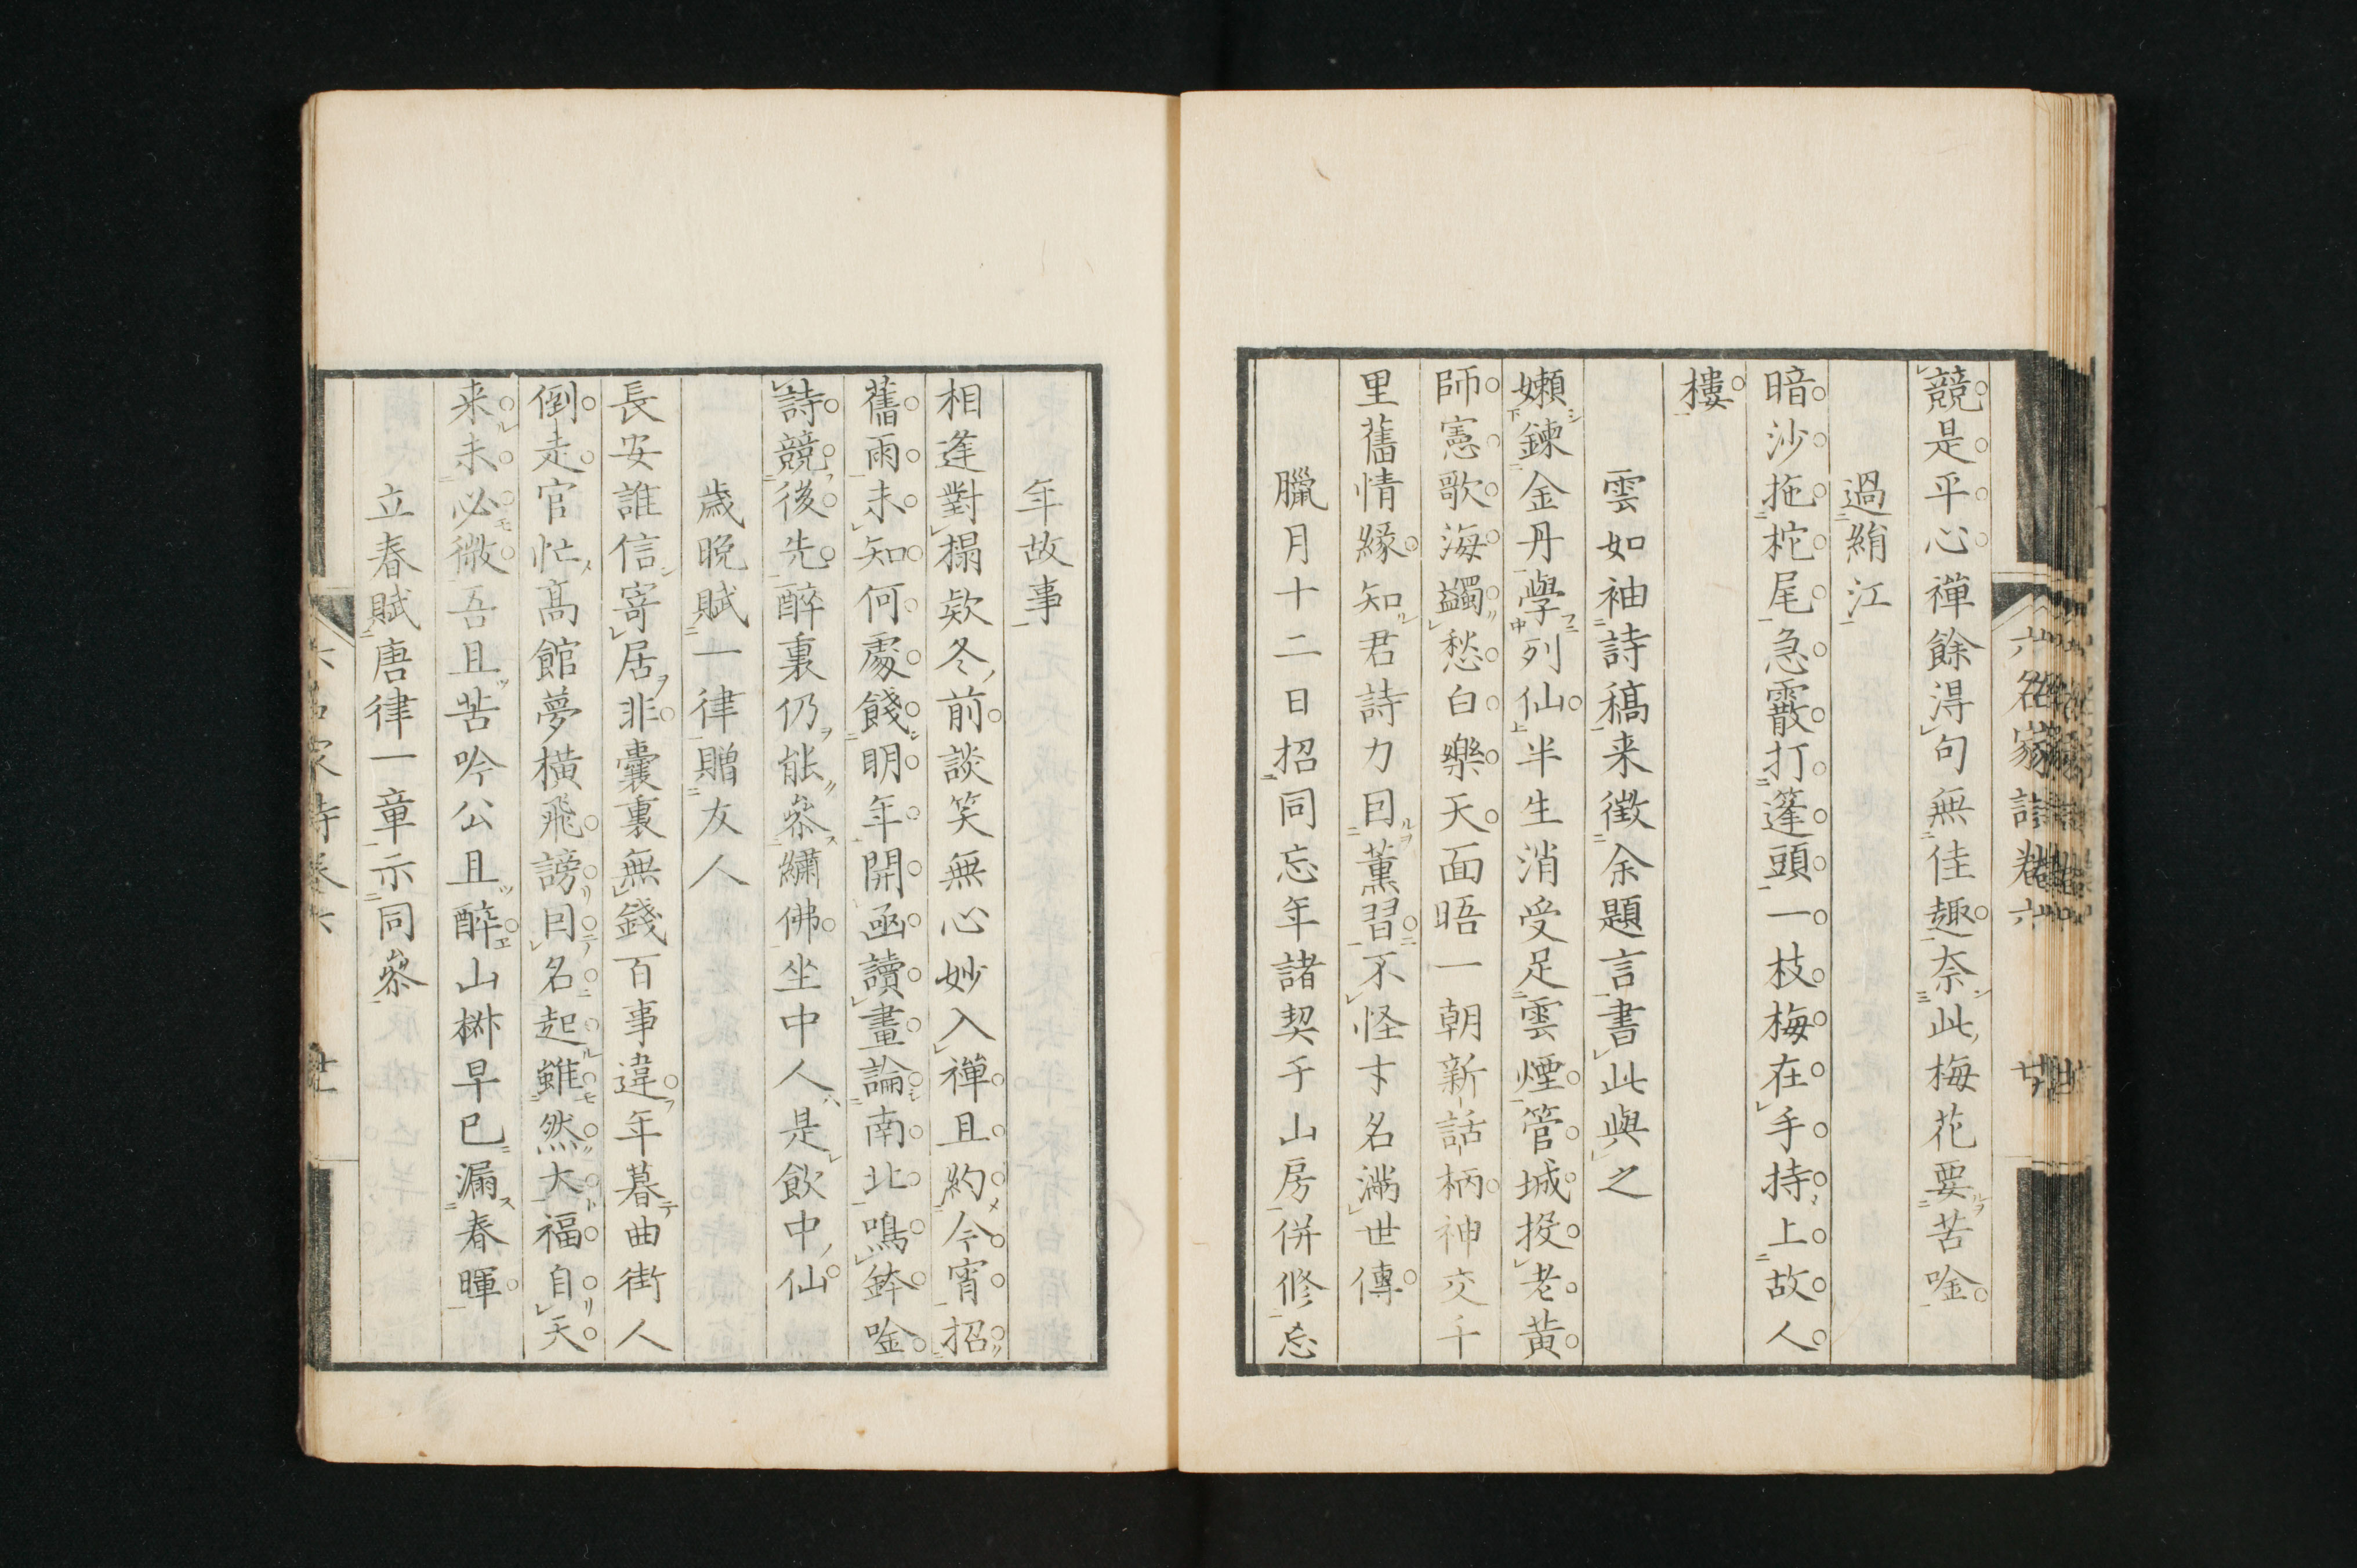 競是平心禪餘淂句無佳趣奈此梅花要苦唫
過絹江
暗沙拖柁尾急霰打篷頭一枝梅在手持上故人
樓
雲如袖詩稿来徴余題言書此與之
嬾鍊金丹學列仙半生消受足雲煙管城投老黄
師憲歌海蠲愁白樂天面晤一朝新話柄神交千
里舊情緣知君詩力因薫習不怪才名滿世傳
臘月十二日招同忘年諸契于山房併修忘
年故事
相逢對榻欵冬前談笑無心妙入禪且約今宵招
舊雨未知何處餞明年開函讀畫論南北鳴鉢唫
詩競後先醉裏仍能参繡佛坐中人是飲中仙
歳晩賦一律贈友人
長安誰信寄居非囊裏無錢百事違年暮曲街人
倒走官忙高館夢横飛謗因名起雖然大福自天
来未必微吾且苦吟公且醉山樊早已漏春暉
立春賦唐律一章示同参
六名家詩巻六